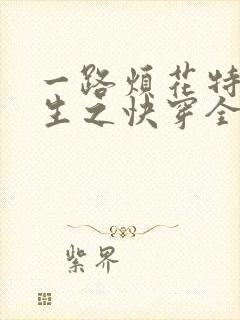 一路烦花特
生之快穿全
紫界